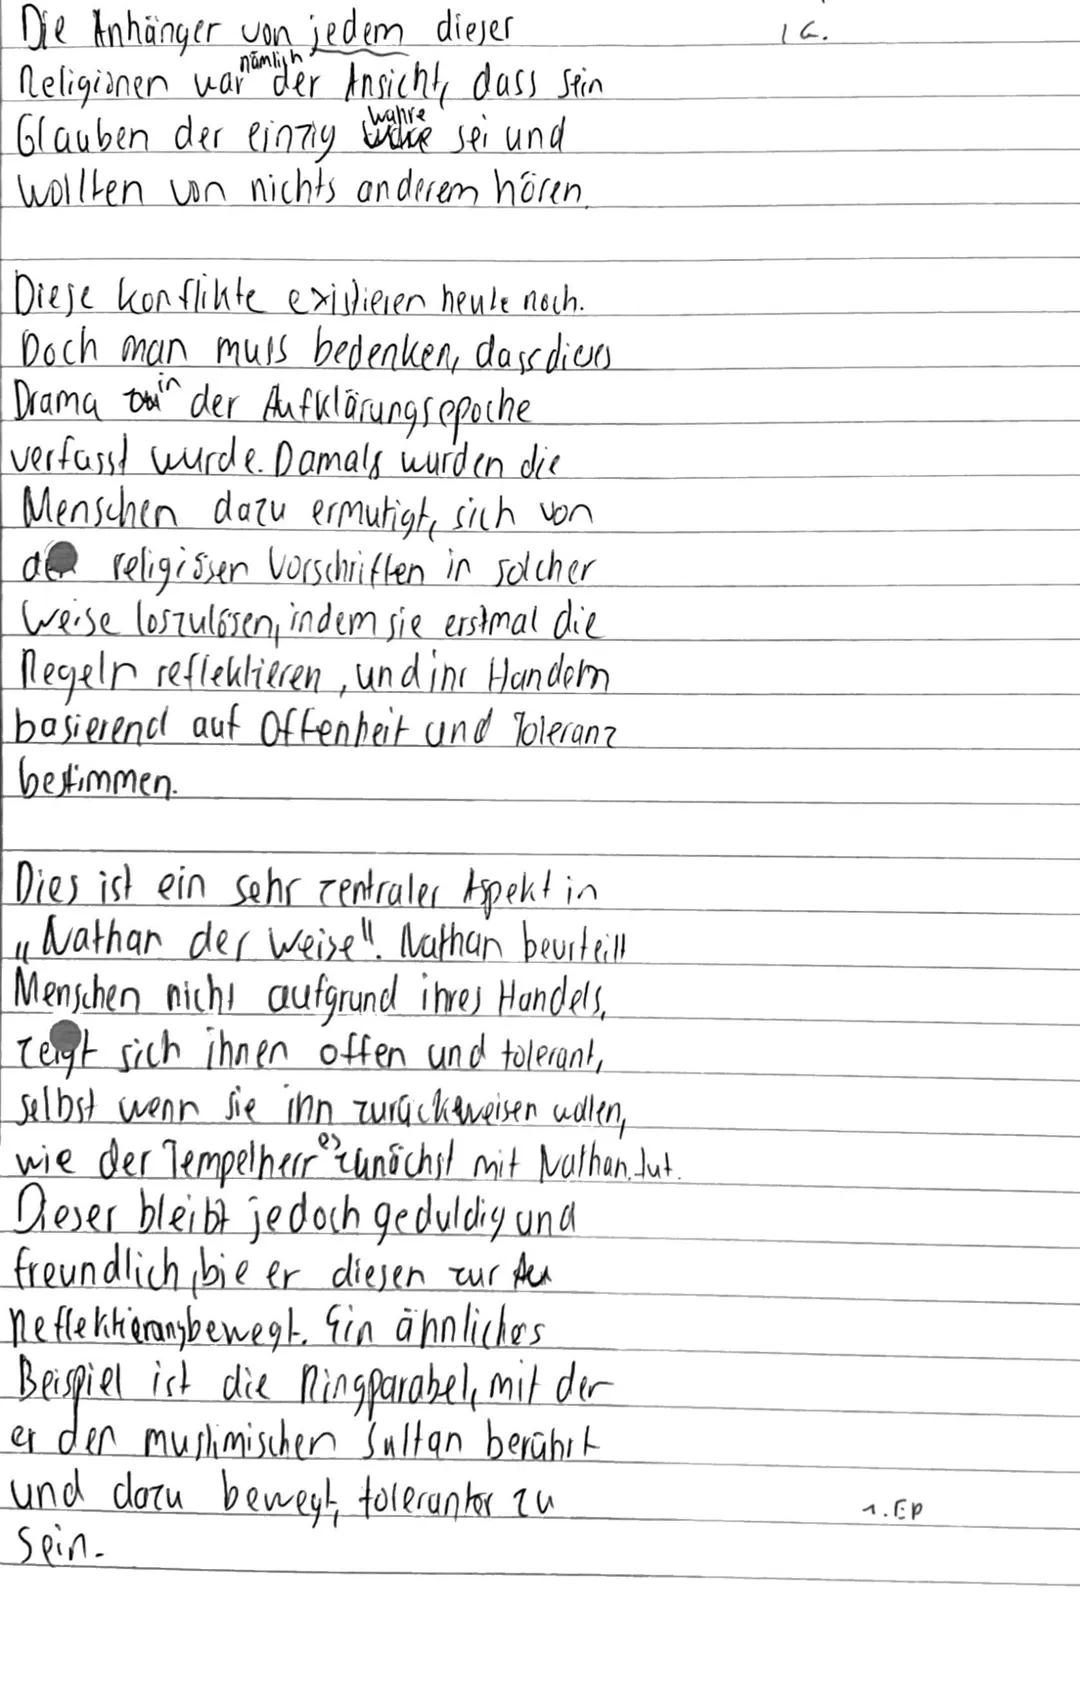 Die Anhänger von jedem dieser
1 G.
Religionen war nämlich der Ansicht, dass sein
Glauben der einzig wahre sei und
wollten von nichts anderem hören.
Diese Konflikte existieren heute noch.
Doch man muss bedenken, dass dieses
Drama in der Aufklärungsepoche
verfasst wurde. Damals wurden die
Menschen dazu ermutigt, sich von
de religiösen Vorschriften in solcher
Weise loszulösen, indem sie erstmal die
Regeln reflektieren, und ihr Handeln
basierend auf Offenheit und Toleranz
bestimmen.
Dies ist ein sehr zentraler Aspekt in
„Nathan der Weise". Nathan beurteilt
Menschen nicht aufgrund ihres Handels,
zeigt sich ihnen offen und tolerant,
selbst wenn sie ihn zurückweisen wollen,
wie der Tempelherr es zunächst mit Nathan tut.
Dieser bleibt jedoch geduldig und
freundlich, bie er diesen zur
Reflektierung bewegt. Ein ähnliches
Beispiel ist die Ringparabel, mit der
er den muslimischen Sultan berührt
und dazu bewegt, toleranter zu
1. EP
sein.